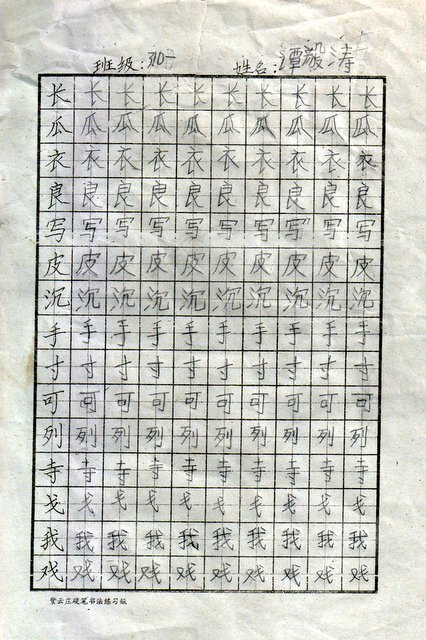 班级: 姓名:谭毅涛
长长长长长长长长长长
瓜瓜瓜瓜瓜瓜瓜瓜瓜瓜
衣衣衣衣衣衣衣衣衣衣
良良良良良良良良良良
写写写写写写写写写写
皮皮皮皮皮皮皮皮皮皮
沉沉沉沉沉沉沉沉沉沉
手手手手手手手手手手
寸寸寸寸寸寸寸寸寸寸
可可可可可可可可可可
列列列列列列列列列列
寺寺寺寺寺寺寺寺寺寺
戈戈戈戈戈戈戈戈戈戈
我我我我我我我我我我
戏戏戏戏戏戏戏戏戏戏
紫云庄硬笔书法练习纸